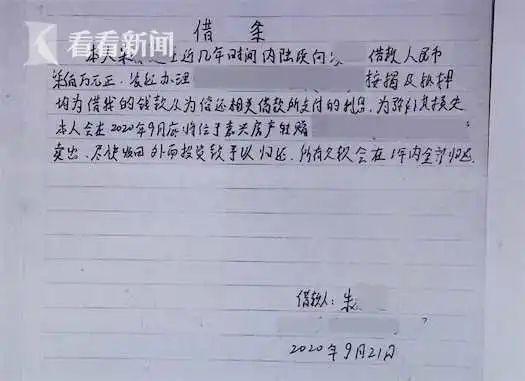 看看新闻
KANKANNEWS
借条
本人朱 近几年时间内陆续向 借款人民币
万元正。 办理 按揭及抵押
均为借我的钱款及为偿还相关借款所支付的利息,为弥补其损失
本人会在2020年9月底将位于嘉兴房产
卖出、尽快收回外面投资款予以归还,所有欠款会在1年内全部归还
借款人:朱
2020年9月21日